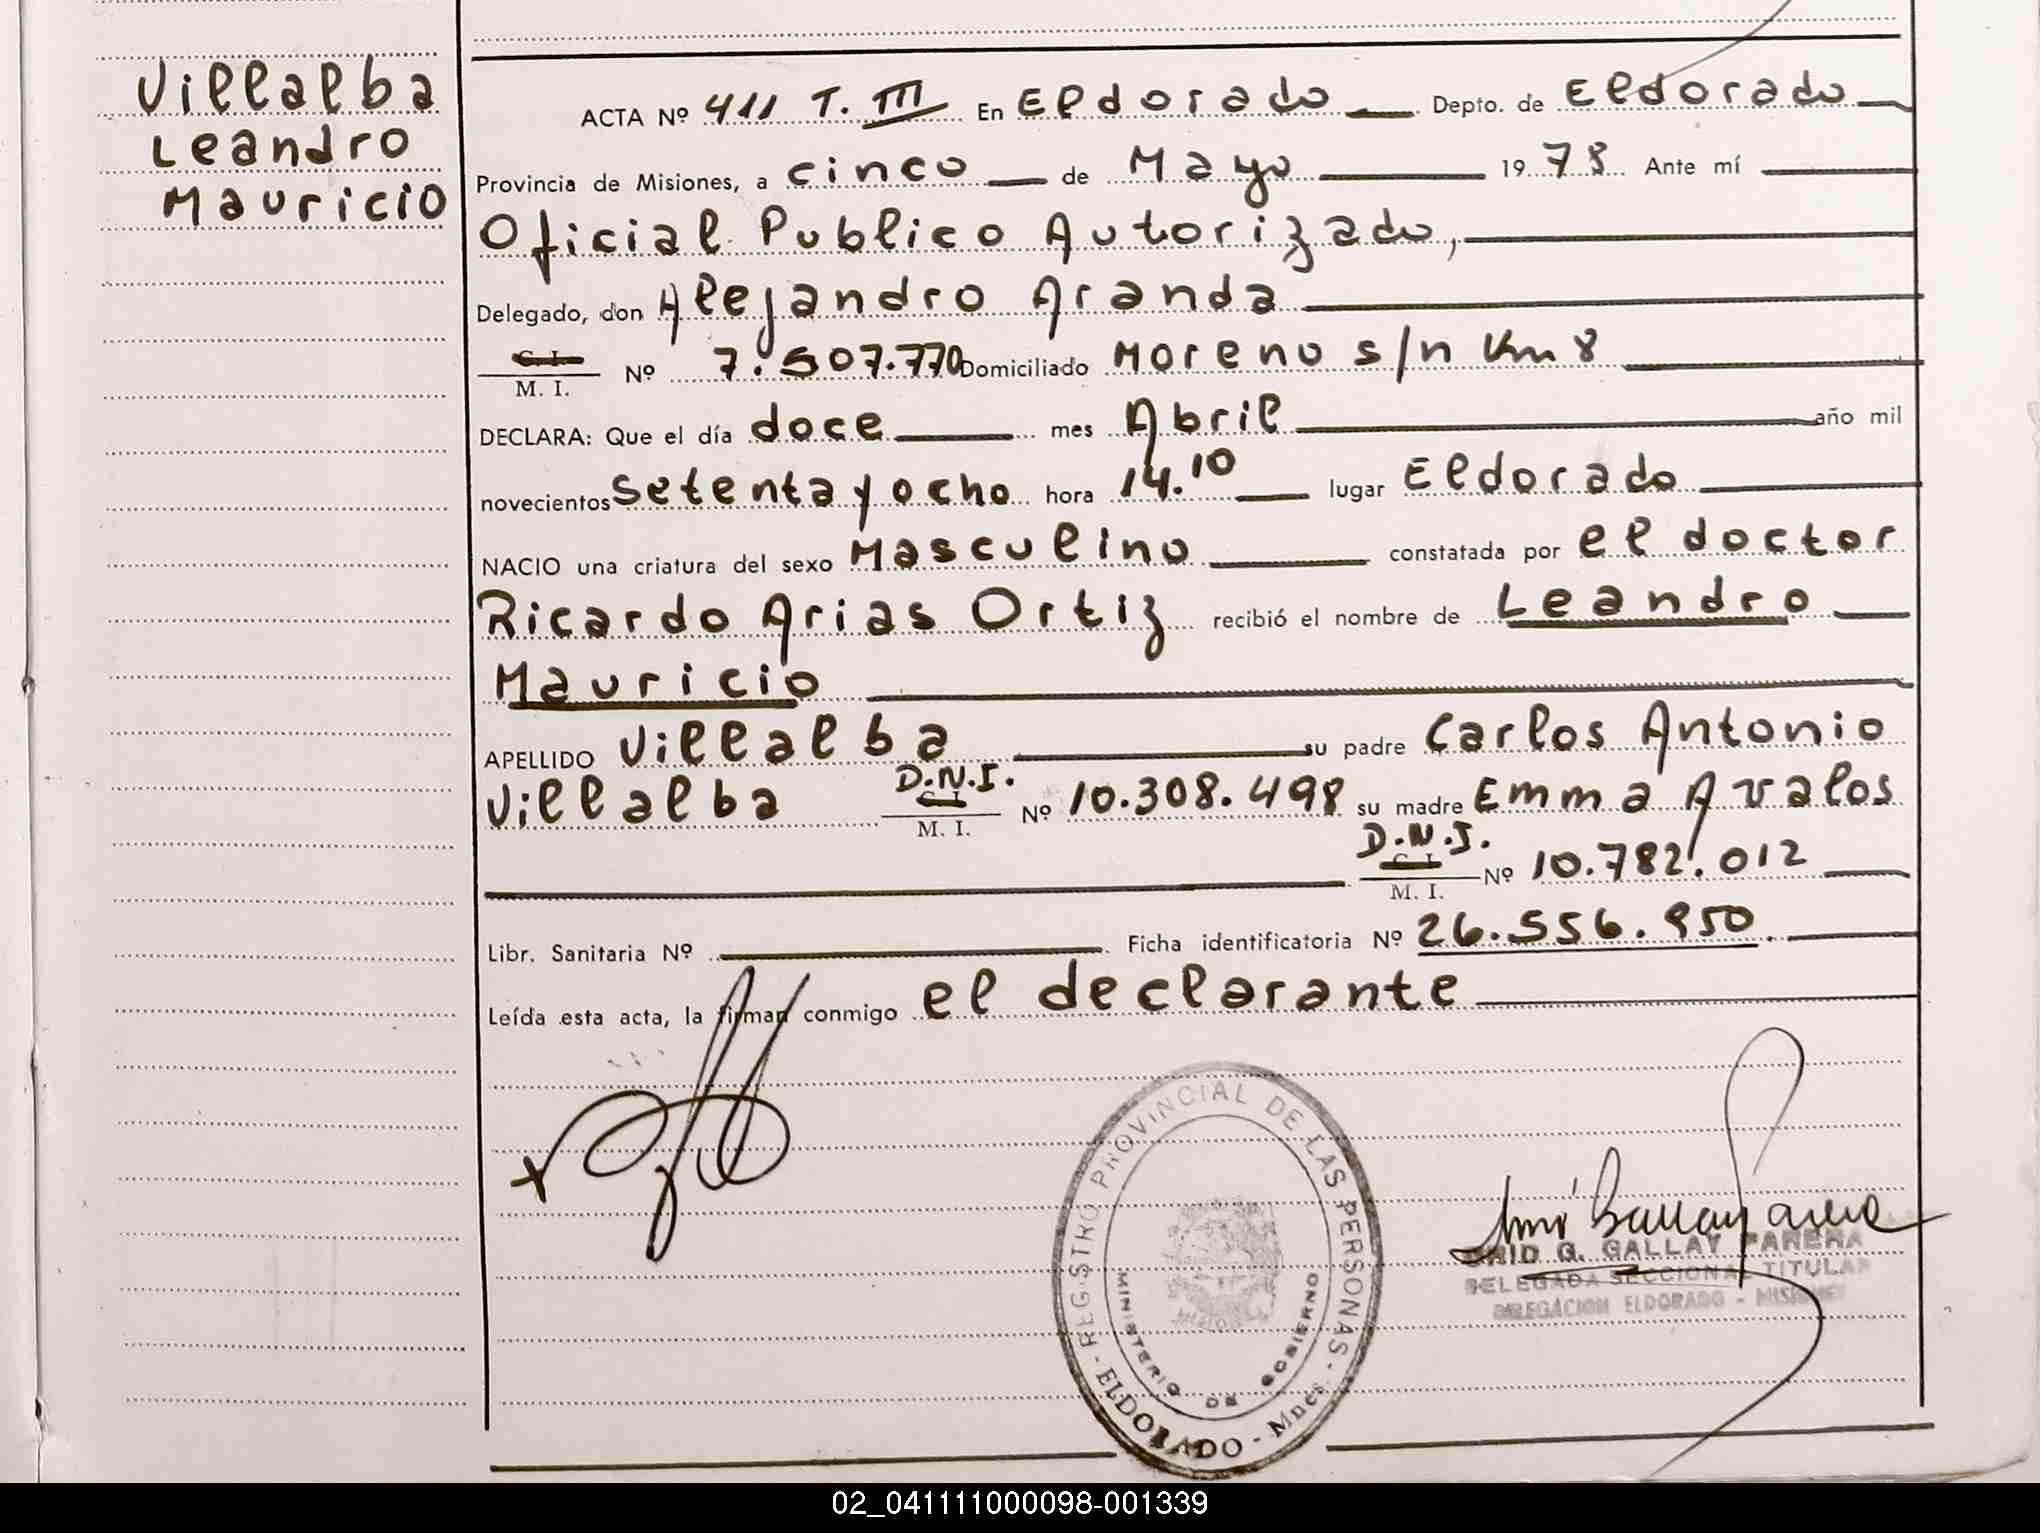 Villalba
Leandro
Mauricio
ACTA Nº 411 T. III En Eldorado Depto. de Eldorado
Provincia de Misiones, a cinco de Mayo 1978 Ante mí
Oficial Publico Autorizado,
Delegado, don Alejandro Aranda
C. I.
M. I. Nº 7.507.770 Domiciliado Moreno s/n Km 8
DECLARA: Que el día doce mes Abril año mil
novecientos setenta y ocho hora 14.10 lugar Eldorado
NACIO una criatura del sexo Masculino constatada por el doctor
Ricardo Arias Ortiz recibió el nombre de Leandro
Mauricio
APELLIDO Villalba su padre Carlos Antonio
Villalba D.N.I. C. I. M. I. Nº 10.308.498 su madre Emma Avalos
D.N.I. C. I. M. I. Nº 10.782.012
Libr. Sanitaria Nº Ficha identificatoria Nº 26.556.950
Leída esta acta, la firman conmigo el declarante
REGISTRO PROVINCIAL DE LAS PERSONAS - ELDORADO - Mnes.
MINISTERIO DE GOBIERNO
G. GALLAY PARERA
DELEGADA SECCIONAL TITULAR
DELEGACION ELDORADO - MISIONES
02_041111000098-001339